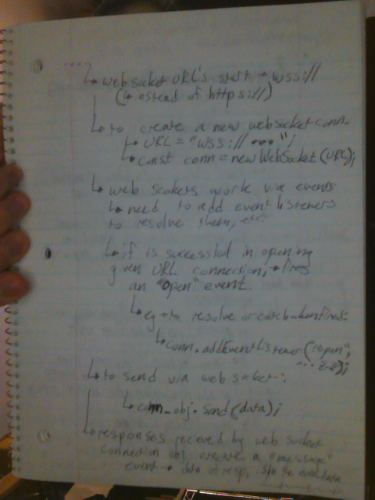 ↳ websocket URL's start → wss://
(↳ instead of https://)
↳ to create a new websocket conn.
↳ URL = "wss:// ...";
↳ const conn = new WebSocket(URL);
↳ web sockets work via events
↳ need to add event listeners
to resolve them, etc.
↳ if is successful in opening
given URL connection, → fires
an "open" event.
↳ to resolve or catch
↳ conn.addEventListener("open",
↳ to send via web socket:
↳ conn_obj.send(data);
↳ responses received by web socket
connection obj create a "message"
event → data of resp.